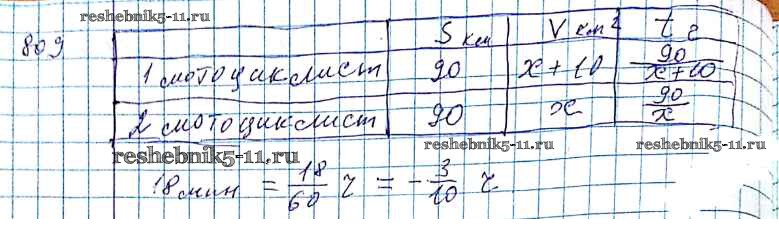 reshebnik5-11.ru
809 S км V км/г t г
1 мотоциклист 90 x+10 90/x+10
2 мотоциклист 90 x 90/x
reshebnik5-11.ru reshebnik5-11.ru reshebnik5-11.ru
18 мин = 18/60 ч = - 3/10 ч